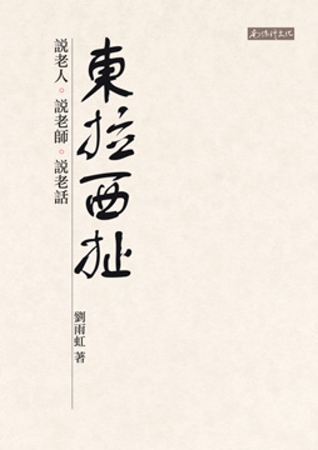 南懷瑾文化
東拉西扯
說老人。說老師。說老話
劉雨虹 著